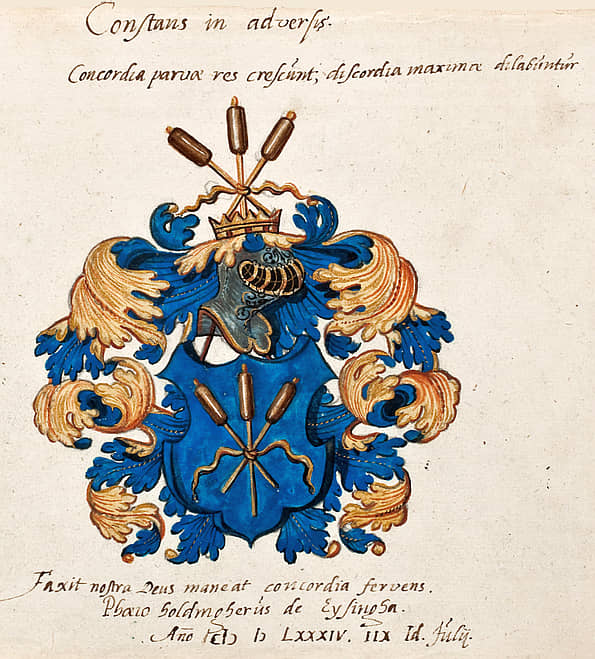 Constans in adversis.
Concordia parvæ res crescunt, discordia maximæ dilabuntur
Faxit nostra Deus maneat concordia fervens.
Phæio holdingherus de Eysingha.
Año LXXXIV. IIX Id. Julij.